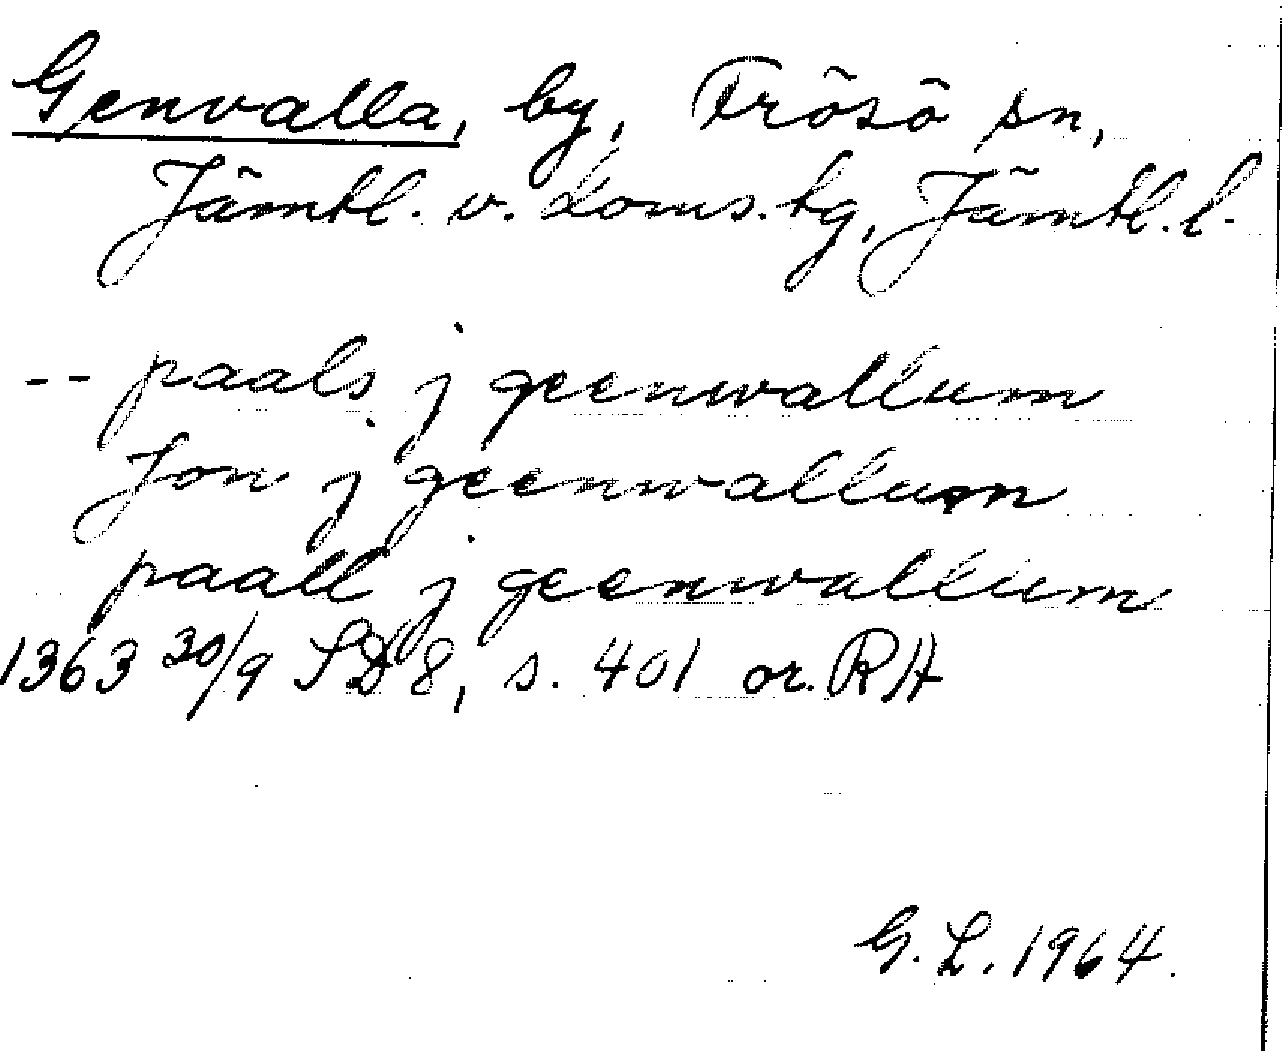 Genvalla, by, Frösö sn,
Jämtl. v. doms. tg, Jämtl. l.
-- paals j geenwallum
Jon j geenwallum
paall j geenwallum
1363 30/9 SD 8, s. 401 or. RA
G. L. 1964.